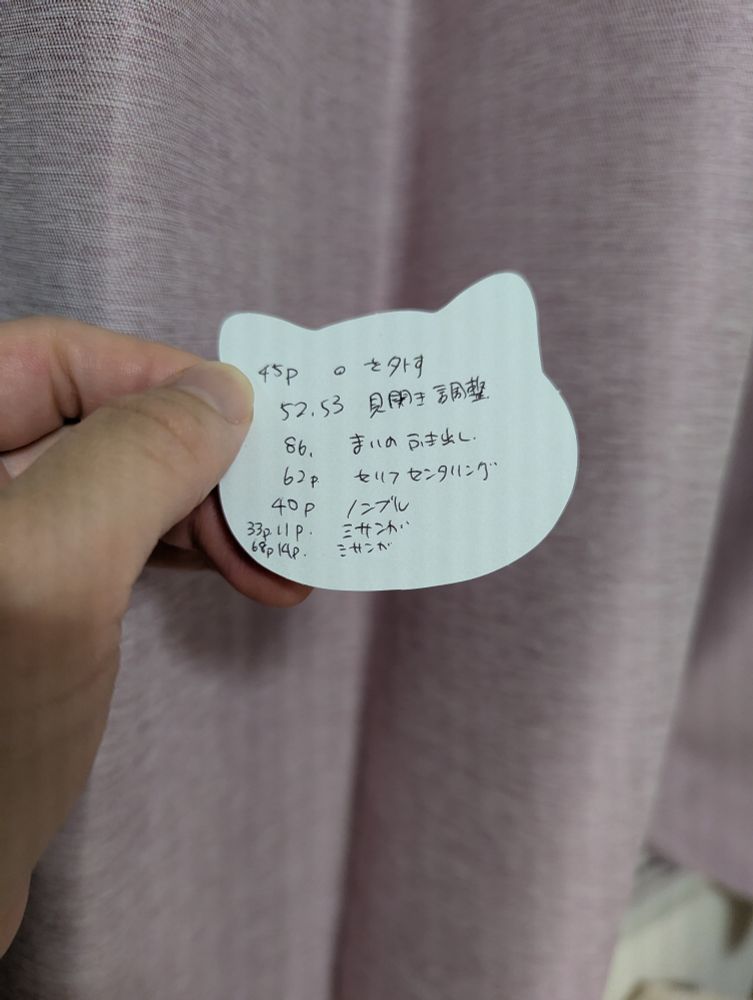 45p 。を外す
52.53 見開き調整
86. まいのふき出し.
62p. セリフセンタリング
40p ノンブル
33p.11p. ミサンガ
68p14p. ミサンガ